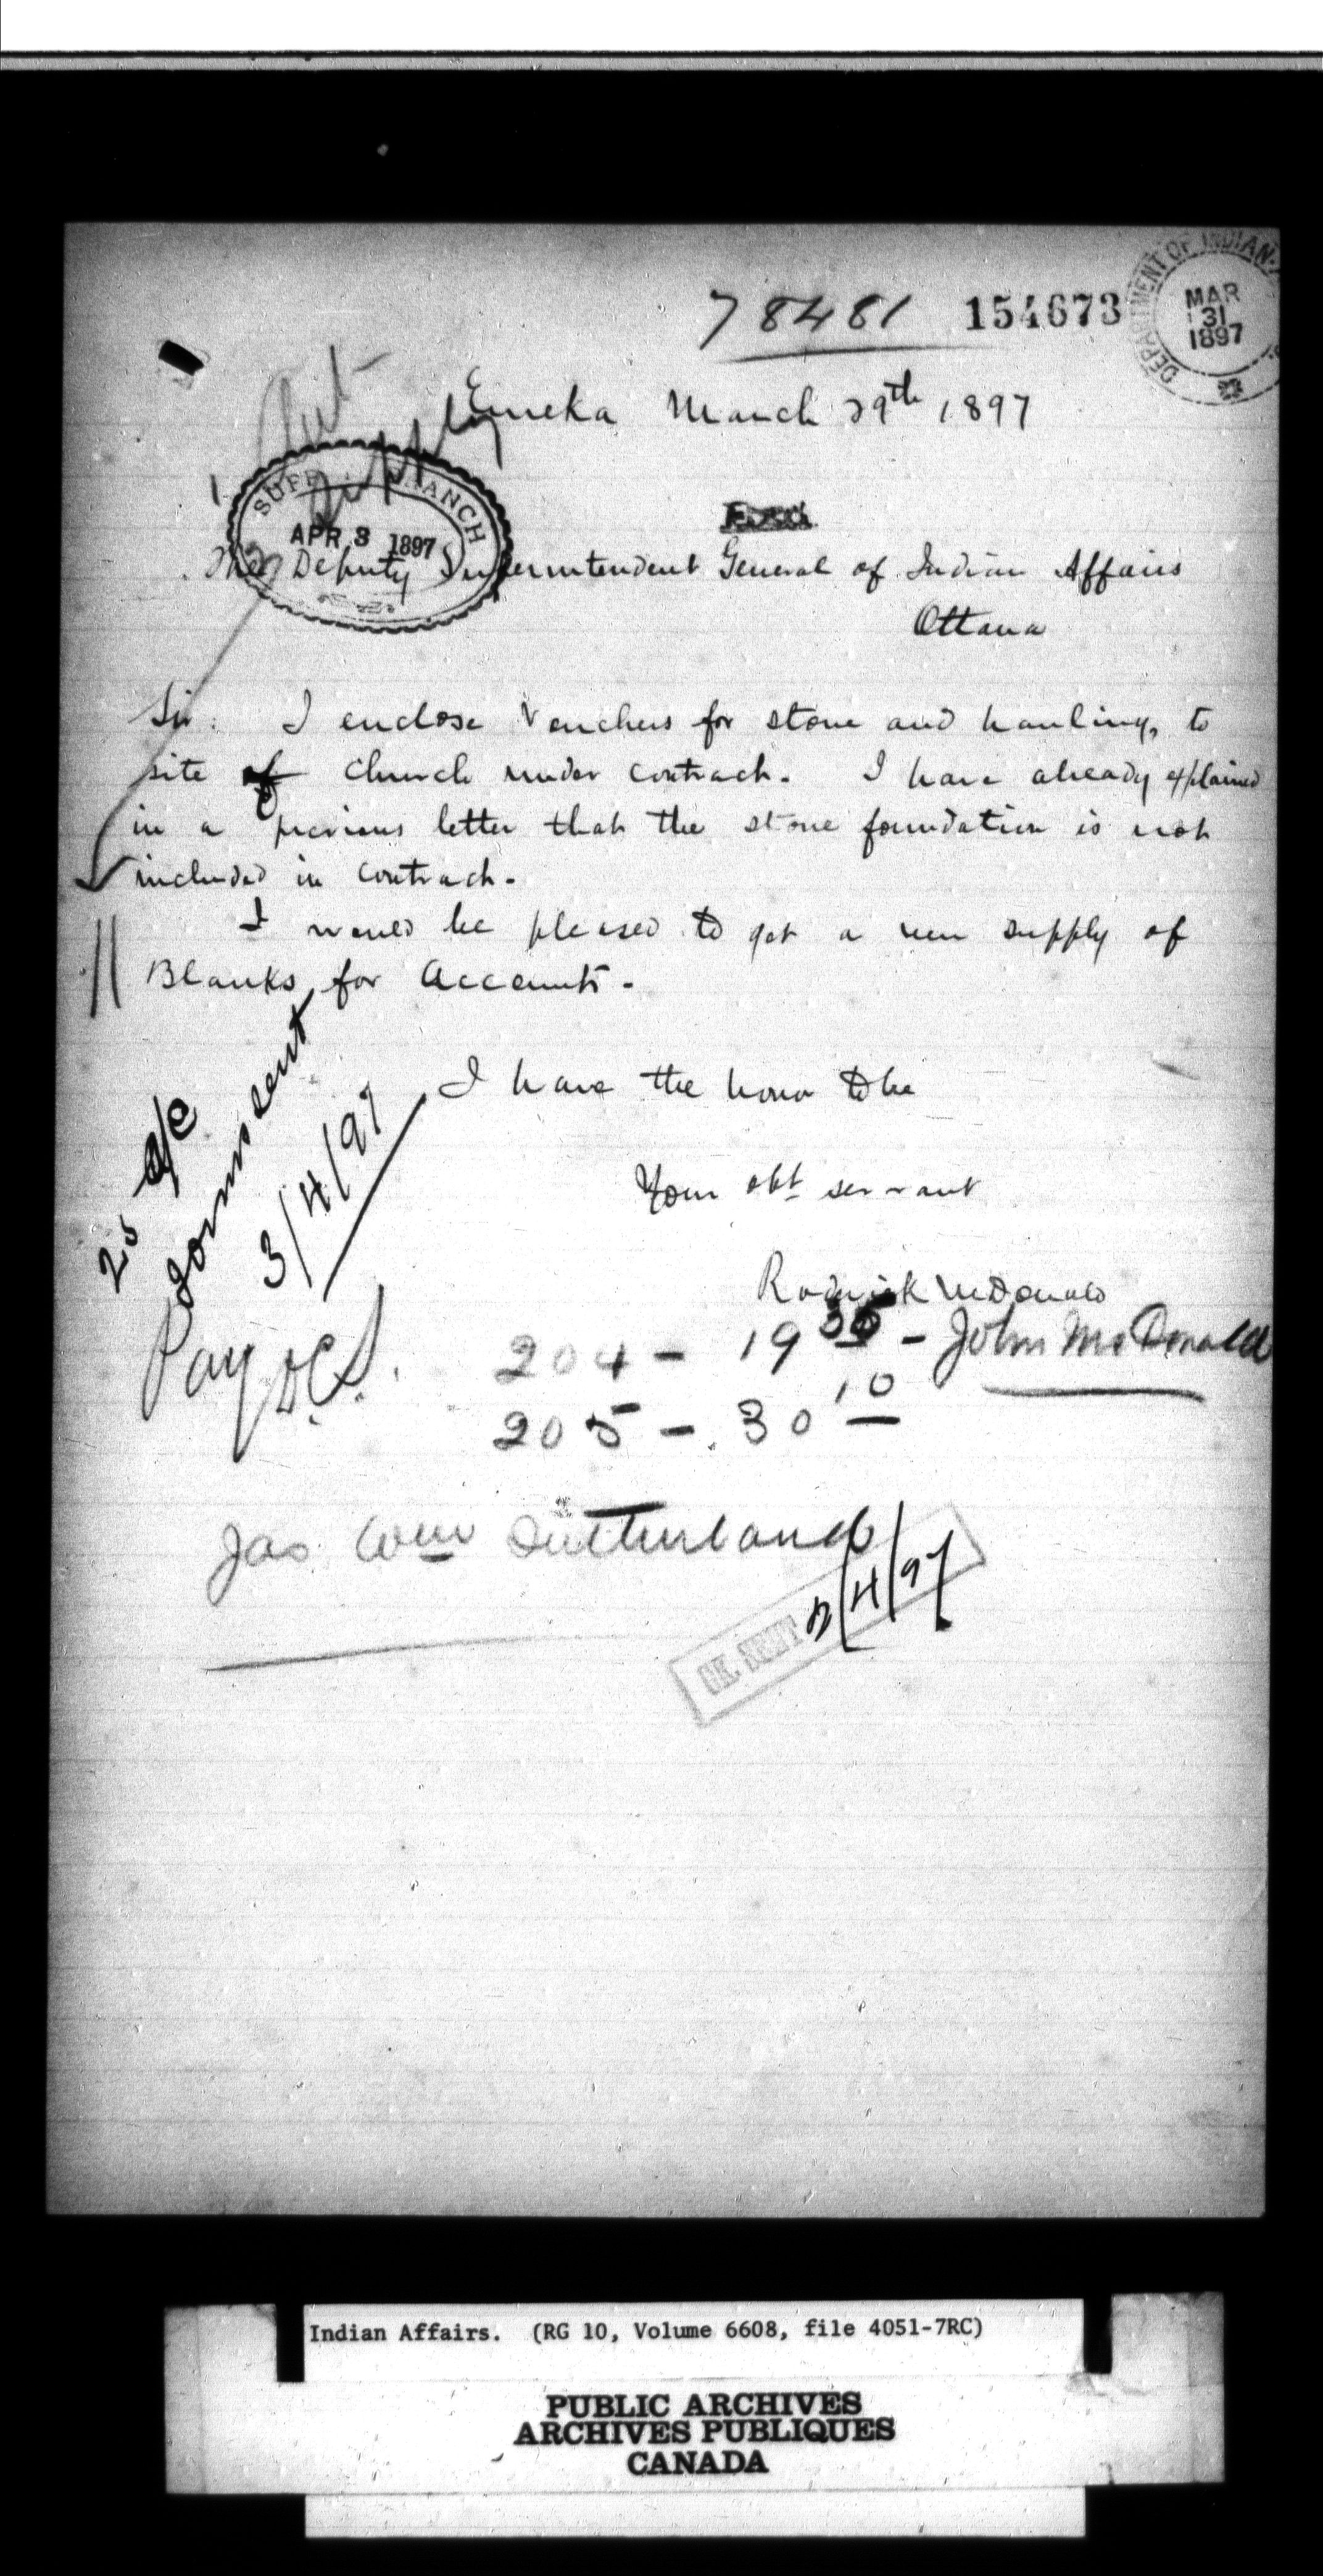 78481 154673
DEPARTMENT OF INDIAN
MAR
31
1897
Eureka March 29th 1897
Supply
BRANCH
APR 3 1897
The Deputy Superintendent General of Indian Affairs
Ottawa
Sir: I enclose Vouchers for stone and hauling, to
site of Church under contract. I have already explained
in a previous letter that the stone foundation is not
included in contract.
I would be pleased to get a new supply of
Blanks for Accounts.
25 a/c
forms sent
3/4/97
I have the honor to be
Your obt servant
Roderick McDonald
Pay D.C.S.
204 - 19 - John McDonald
205 - 30 10
Jas Wm Sutherland
2/4/97
Indian Affairs. (RG 10, Volume 6608, file 4051-7RC)
PUBLIC ARCHIVES
ARCHIVES PUBLIQUES
CANADA